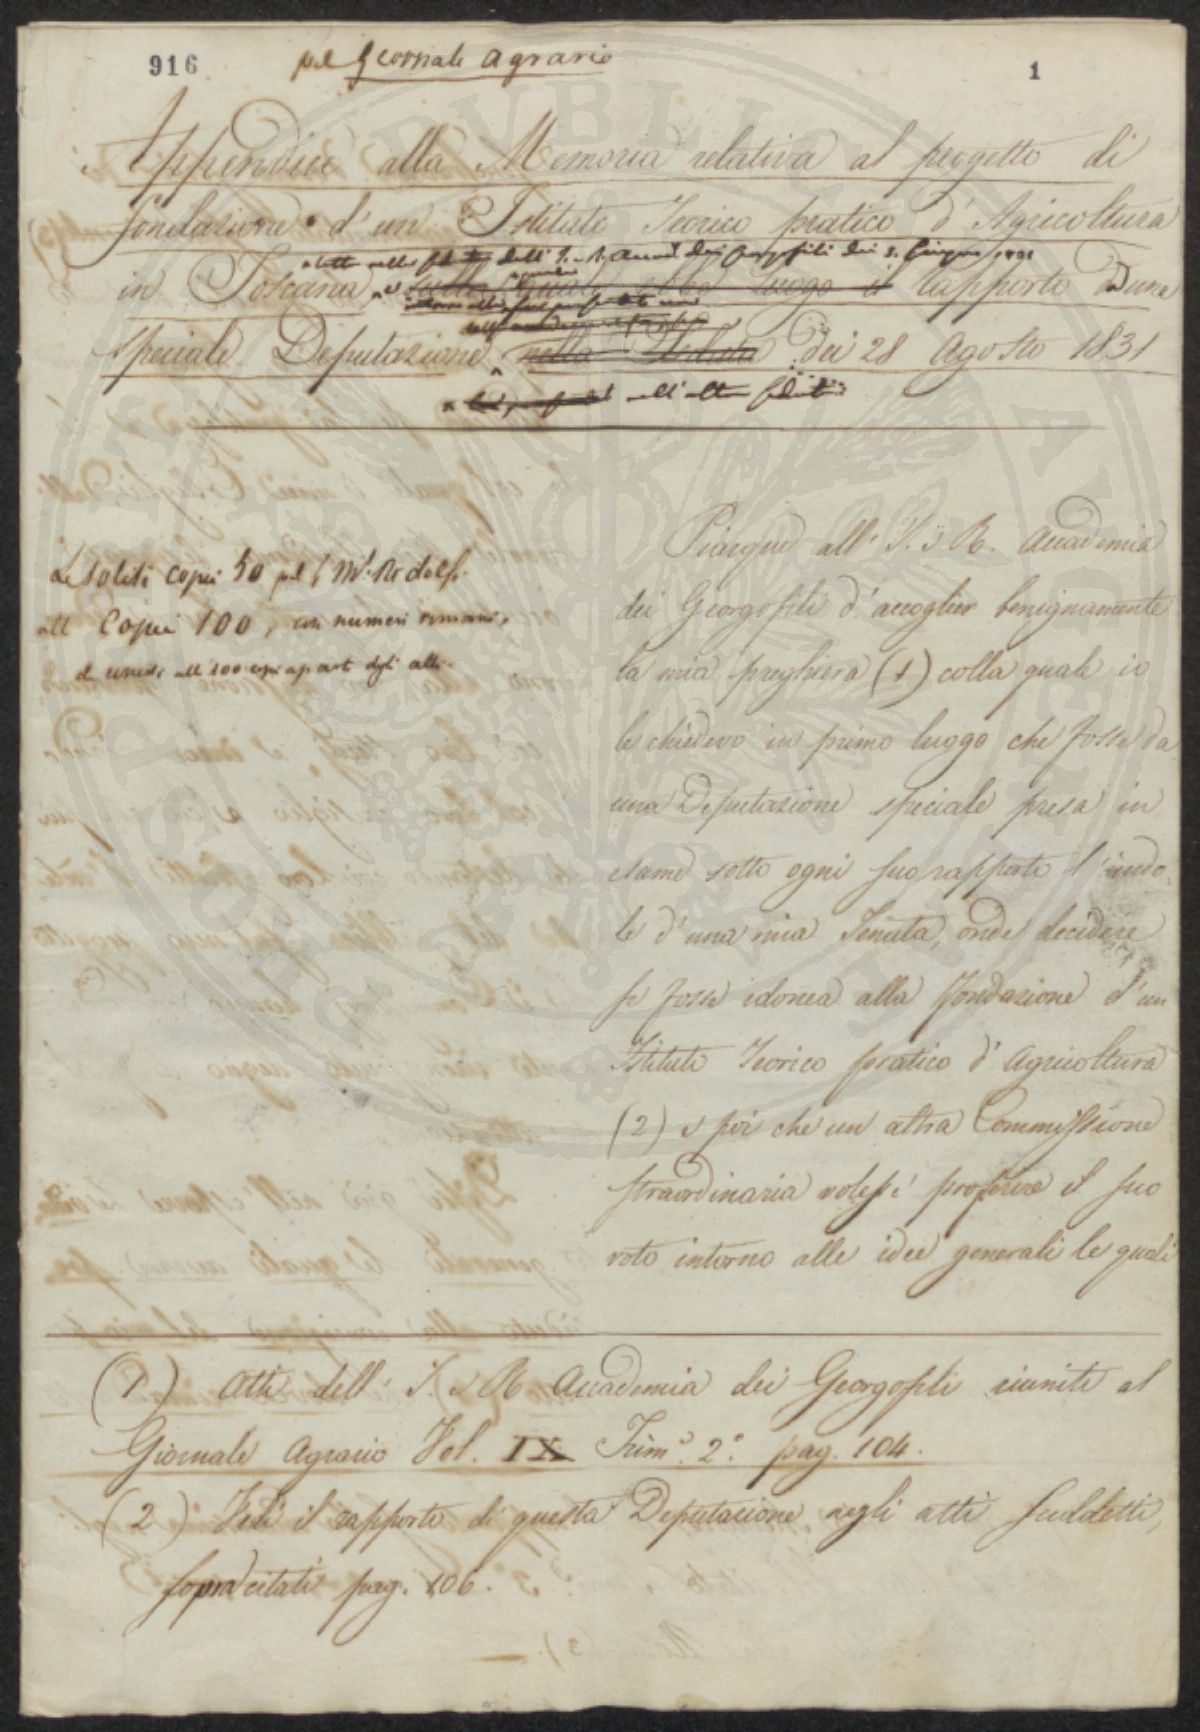 916
pel Giornale Agrario
1
Appendice alla Memoria relativa al progetto di
fondazione d'un Istituto Teorico pratico d'Agricoltura
letta nella dell' I. e R. Accad. dei Georgofili dei 5. Giugno 1831
in Toscana, e luogo il rapporto d'una
speciale Deputazione nella dei 28 Agosto 1831
nell'altra
Le solite copie 50 pel S. M.e Ridolfi.
alt Copie 100, con numeri romani,
da unirsi alle 100 copie a part degli altri.
Piacque all' I. e R. Accademia
dei Georgofili d'accoglier benignamente
la mia preghiera (1) colla quale io
le chiedevo in primo luogo che fosse da
una Deputazione speciale presa in
esame sotto ogni suo rapporto l'indo-
le d'una mia Tenuta, onde decidere
se fosse idonea alla fondazione d'un
Istituto Teorico pratico d'Agricoltura
(2) e poi che un altra Commissione
straordinaria volesse proferire il suo
voto intorno alle idee generali le quali
(1) Atti dell' I. e R. Accademia dei Georgofili riuniti al
Giornale Agrario Vol. IX Trim.e 2.o pag. 104.
(2) Vedi il rapporto di questa Deputazione negli atti suddetti,
sopracitati pag. 106.